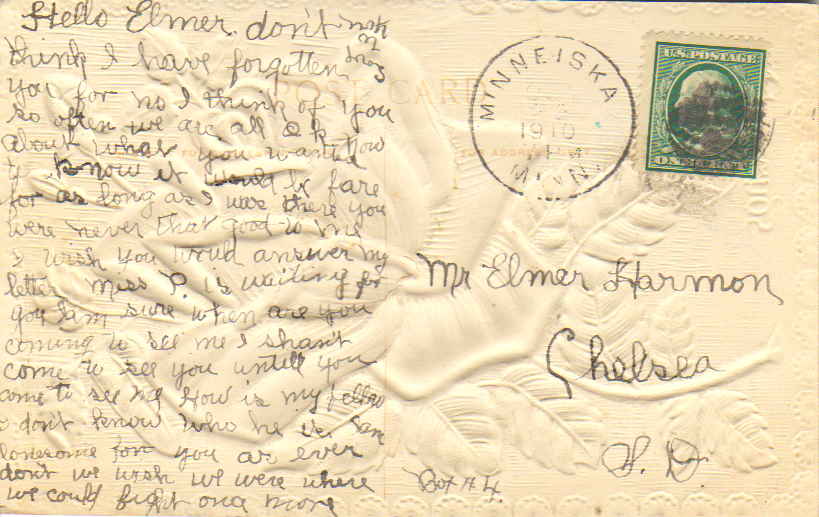 Hello Elmer. don't
think I have forgotten
you for no I think of you
so often we are all O k
about what you wanted
to know it would be fare
for as long as I was there you
were never that good to me
I wish you would answer my
letter Miss P. is waiting for
you I am sure when are you
coming to see me I shan't
come to see you untill you
come to see me How is my fellow
I don't know who he is
lonesome for you as ever
don't we wish we were where
we could fight once more
POST CARD
MINNEISKA
1910
MINN.
U.S. POSTAGE
ONE CENT
Mr Elmer Harmon
Chelsea
S. D.
Box # 4.